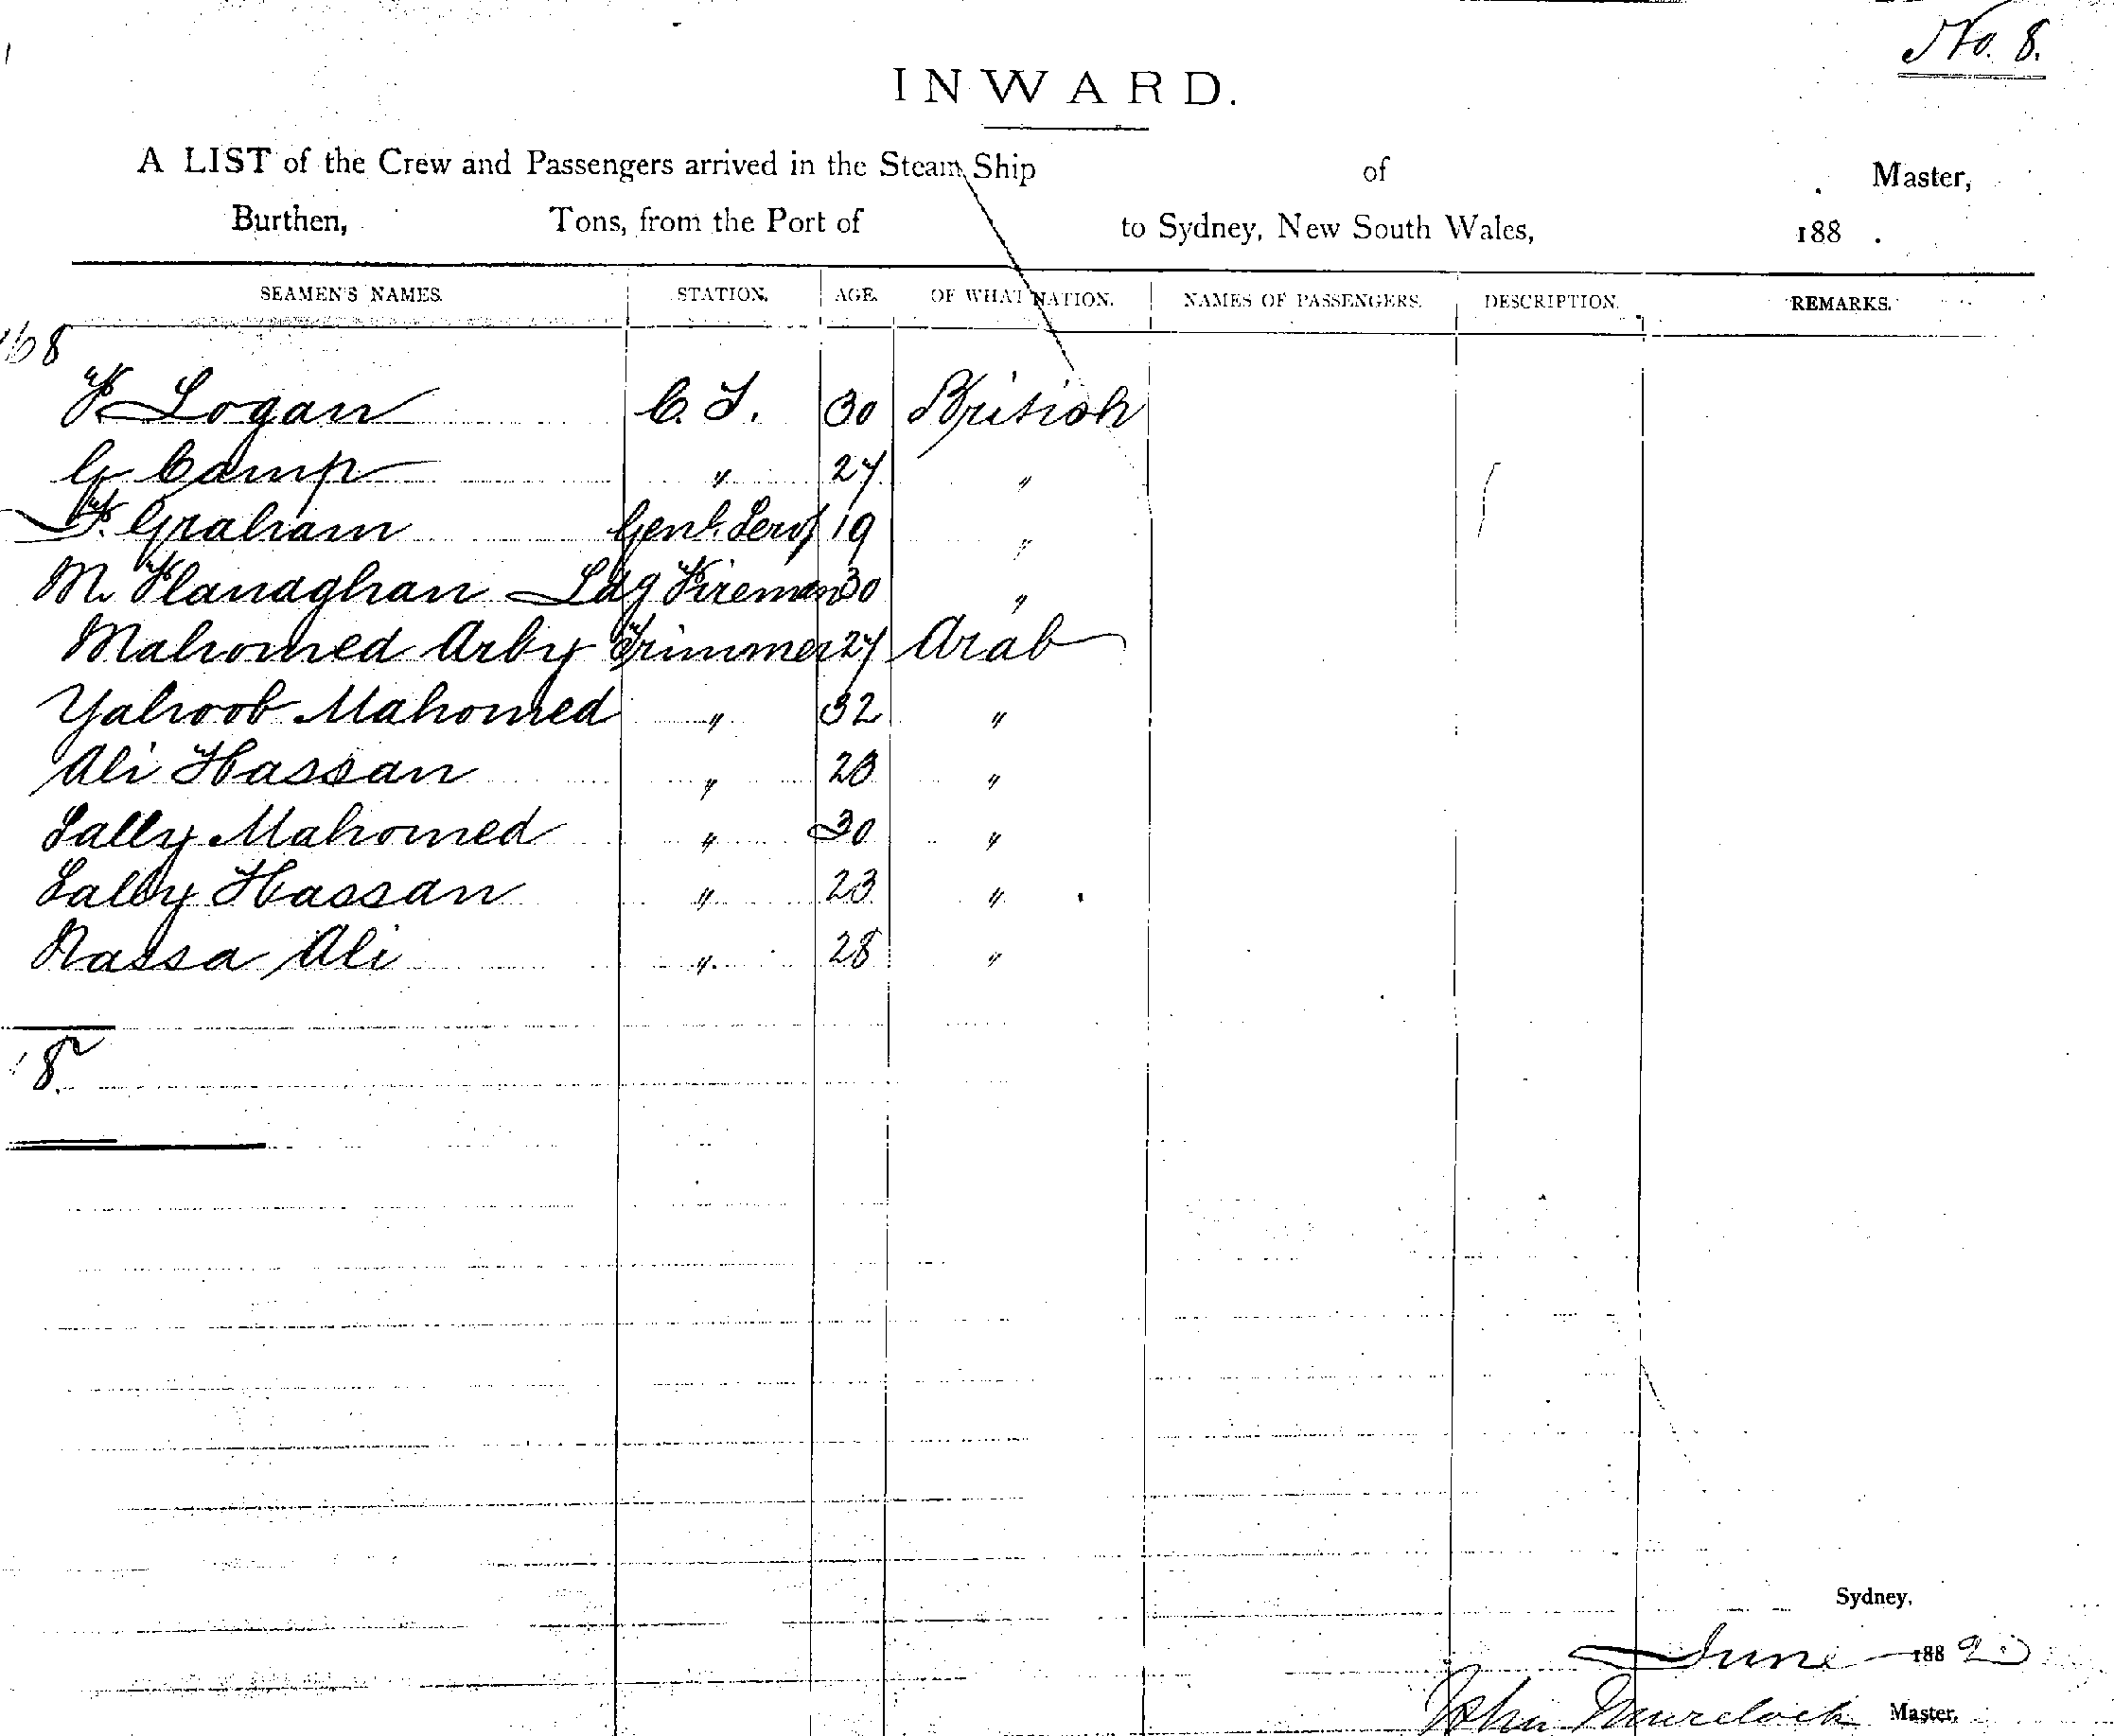 No. 8.
INWARD.
A LIST of the Crew and Passengers arrived in the Steam Ship of Master,
Burthen, Tons, from the Port of to Sydney, New South Wales, 188 .
SEAMEN'S NAMES. STATION. AGE. OF WHAT NATION. NAMES OF PASSENGERS. DESCRIPTION. REMARKS.
168
F Logan C. S. 30 British
G Camp " 27 "
F. Graham Genl. Servt 19 "
M. Flanaghan Ldg Fireman 30 "
Mahomed Arby Trimmer 27 Arab
Yahoob Mahomed " 32 "
Ali Hassan " 28 "
Sally Mahomed " 30 "
Salby Hassan " 23 "
Rassa Ali " 28 "
Sydney,
June 1882
John Murdoch Master,